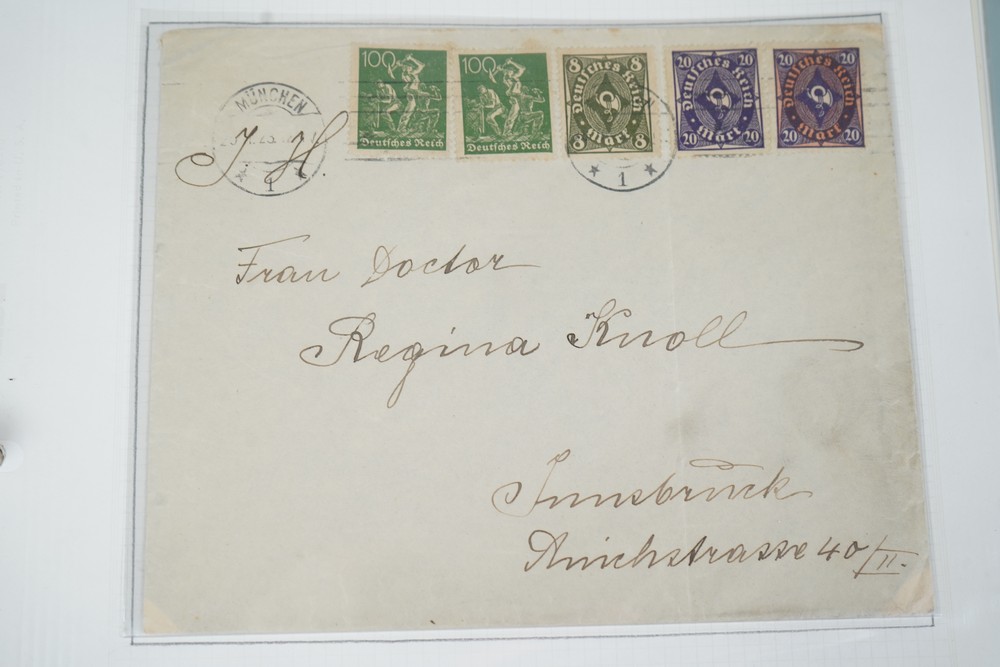 100
Deutsches Reich
100
Deutsches Reich
8 8
Deutsches Reich
Mark
8 8
20 20
Deutsches Reich
Mark
20 20
20 20
Deutsches Reich
Mark
20 20
MÜNCHEN
1
1
J. H.
Frau Doctor
Regina Knoll
Innsbruck
Anichstrasse 40/II.